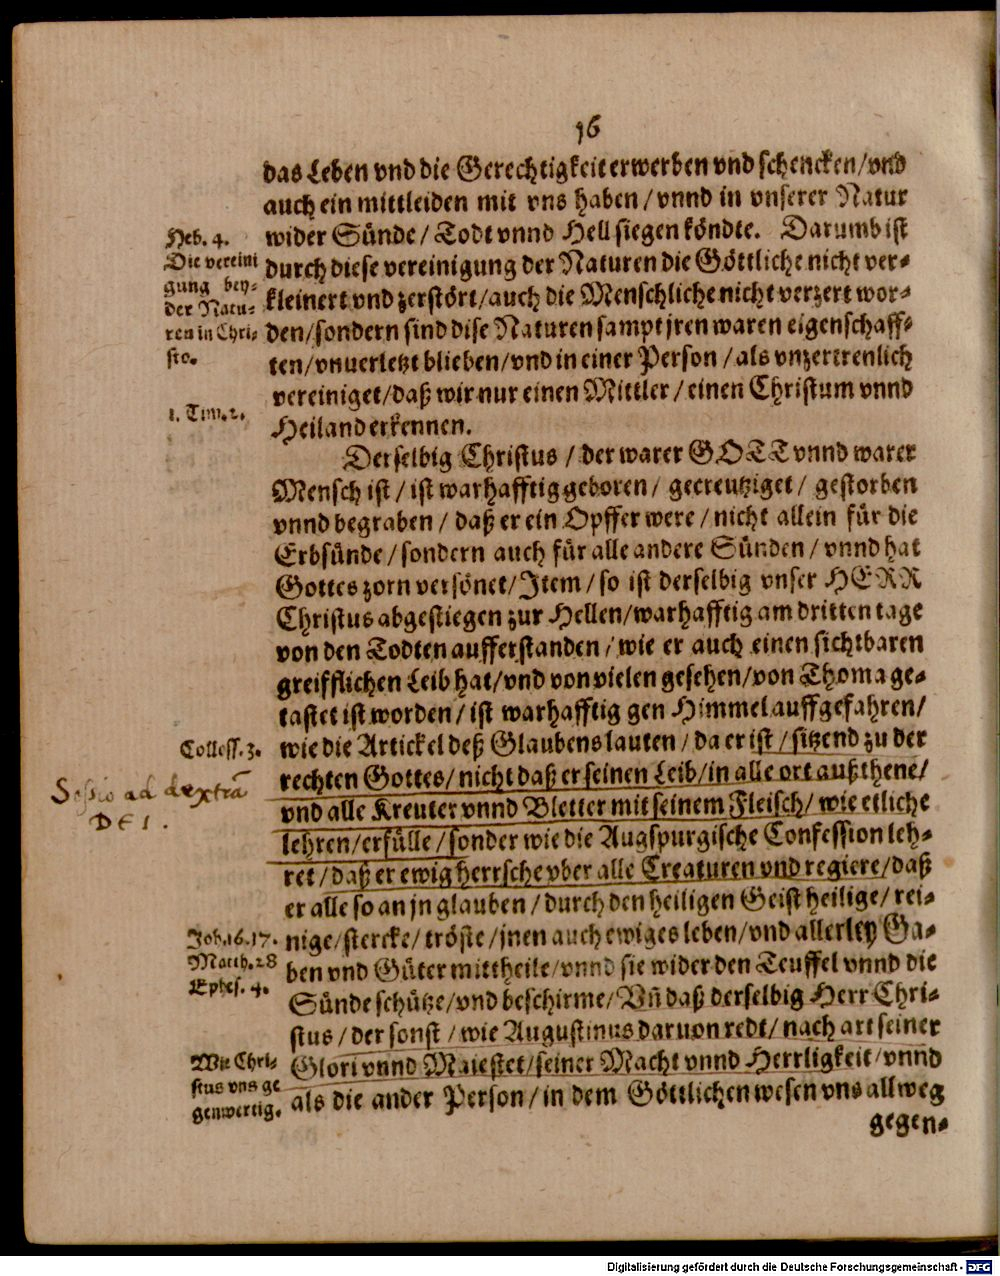 16
das Leben vnd die Gerechtigkeit erwerben vnd schencken/vnd
auch ein mittleiden mit vns haben/vnnd in vnserer Natur
Heb. 4.
wider Sünde/Todt vnnd Hell siegen köndte. Darumb ist
Die vereini
durch diese vereinigung der Naturen die Göttliche nicht ver-
gung bey-
kleinert vnd zerstört/auch die Menschliche nicht verzert wor-
der Natu-
ren in Chri-
den/sondern sind dise Naturen sampt jren waren eigenschaff-
sto.
ten/vnuerletzt blieben/vnd in einer Person/als vnzertrenlich
vereiniget/daß wir nur einen Mittler/einen Christum vnnd
1. Tim. 2.
Heiland erkennen.
Derselbig Christus/der warer GOTT vnnd warer
Mensch ist/ist warhafftig geboren/gecreutziget/gestorben
vnnd begraben/daß er ein Opffer were/nicht allein für die
Erbsünde/sondern auch für alle andere Sünden/vnnd hat
Gottes zorn versönet/Item/so ist derselbig vnser HERR
Christus abgestiegen zur Hellen/warhafftig am dritten tage
von den Todten aufferstanden/wie er auch einen sichtbaren
greifflichen Leib hat/vnd von vielen gesehen/von Thoma ge-
tastet ist worden/ist warhafftig gen Himmel auffgefahren/
Colloss. 3.
wie die Artickel deß Glaubens lauten/da er ist/sitzend zu der
Sessio ad dextrā
DEI.
rechten Gottes/nicht daß er seinen Leib/in alle ort außthene/
vnd alle Kreuter vnnd Bletter mit seinem Fleisch/wie etliche
lehren/erfülle/sonder wie die Augspurgische Confession leh-
ret/daß er ewig herrsche vber alle Creaturen vnd regiere/daß
er alle so an jn glauben/durch den heiligen Geist heilige/rei-
Joh. 16. 17.
nige/stercke/tröste/jnen auch ewiges leben/vnd allerley Ga-
Matth. 28
ben vnd Güter mittheile/vnnd sie wider den Teuffel vnnd die
Ephes. 4.
Sünde schütze/vnd beschirme/Vn̄ daß derselbig Herr Chri-
stus/der sonst/wie Augustinus daruon redt/nach art seiner
Wie Chri-
Glori vnnd Maiestet/seiner Macht vnnd Herrligkeit/vnnd
stus vns ge
genwertig.
als die ander Person/in dem Göttlichen wesen vns allweg
gegen-
Digitalisierung gefördert durch die Deutsche Forschungsgemeinschaft - DFG